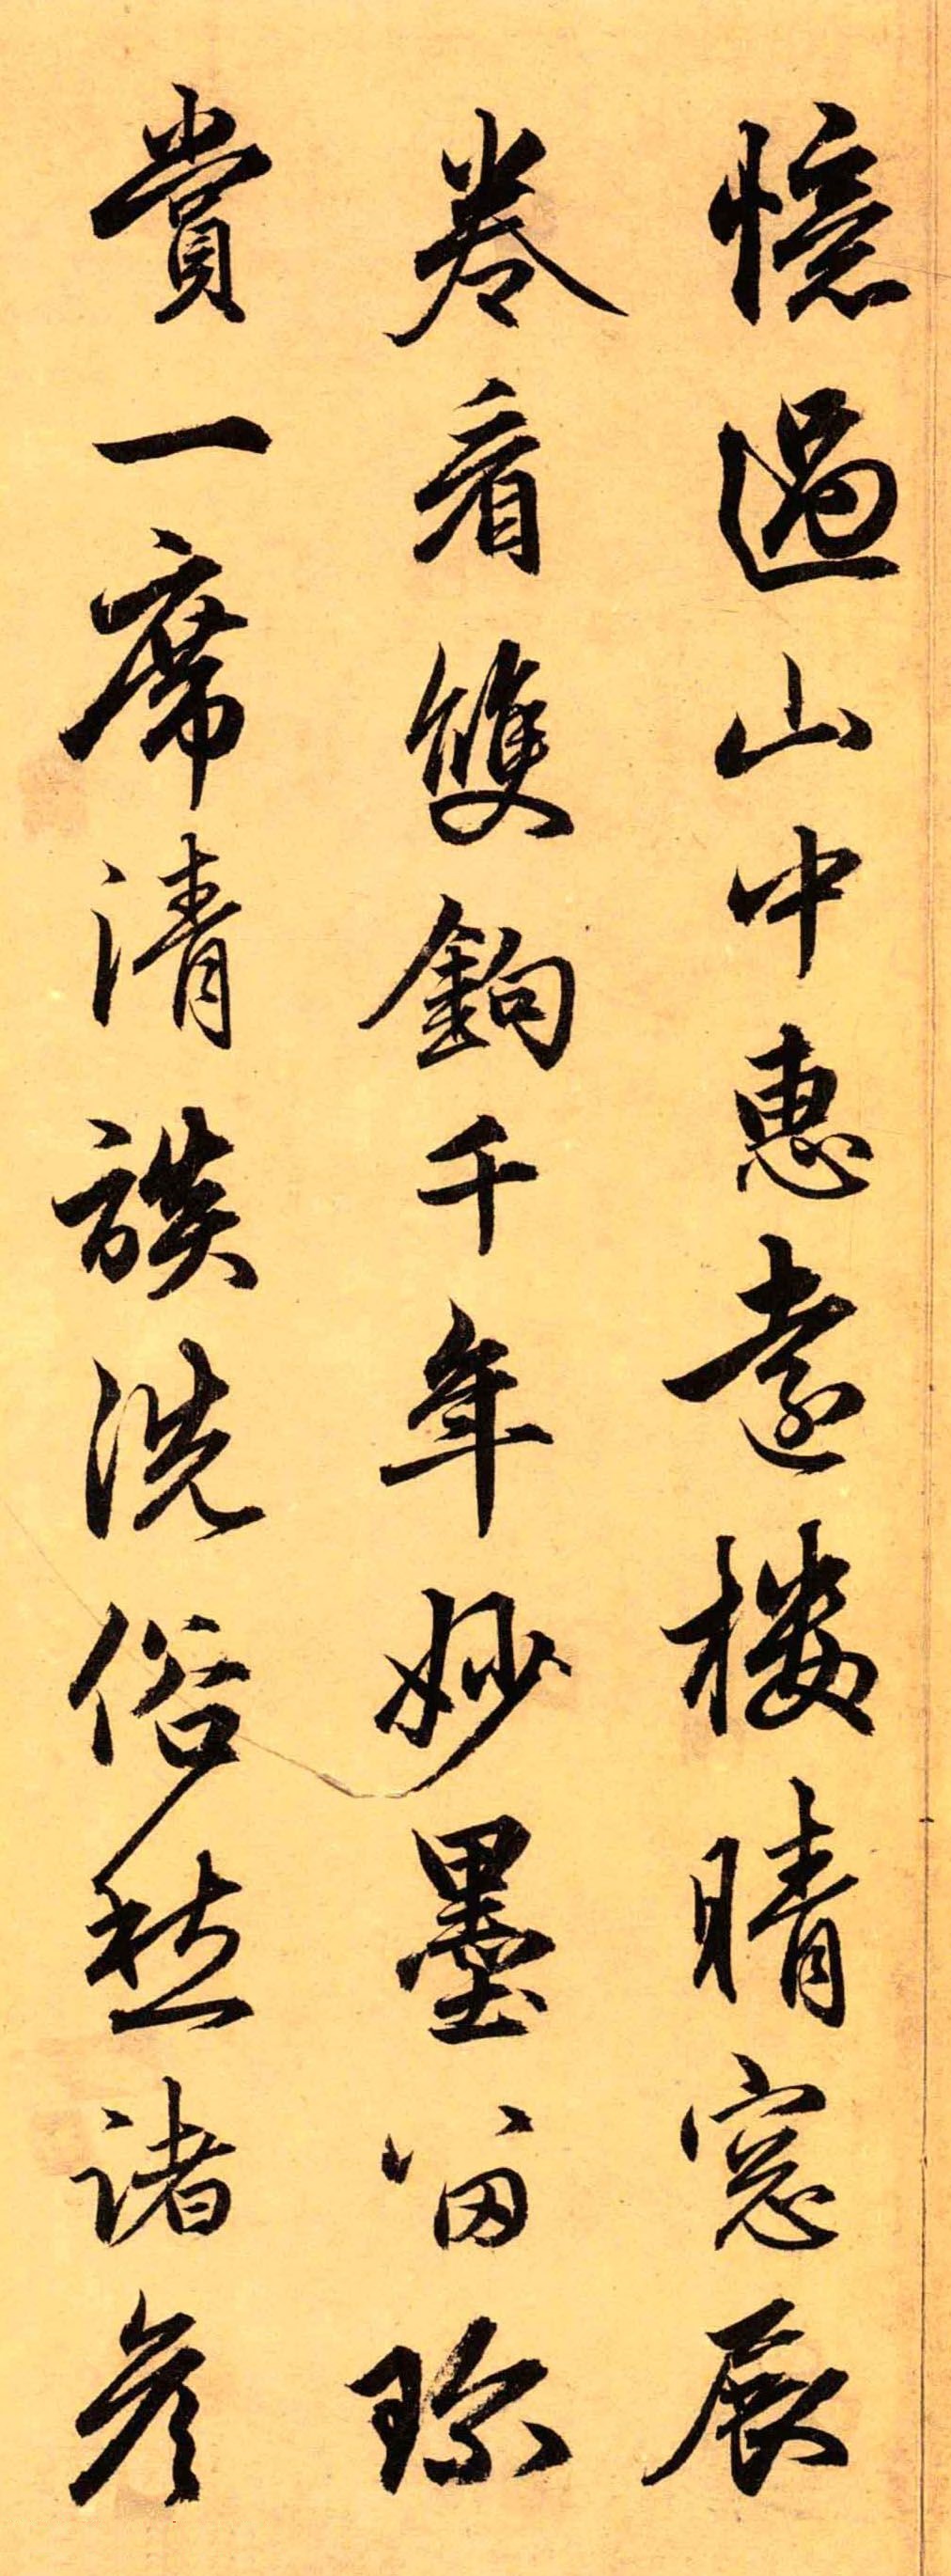 憶過山中惠遠樓晴窓展
卷看雙鉤千年妙墨留珎
賞一席清談洗俗愁諸彦